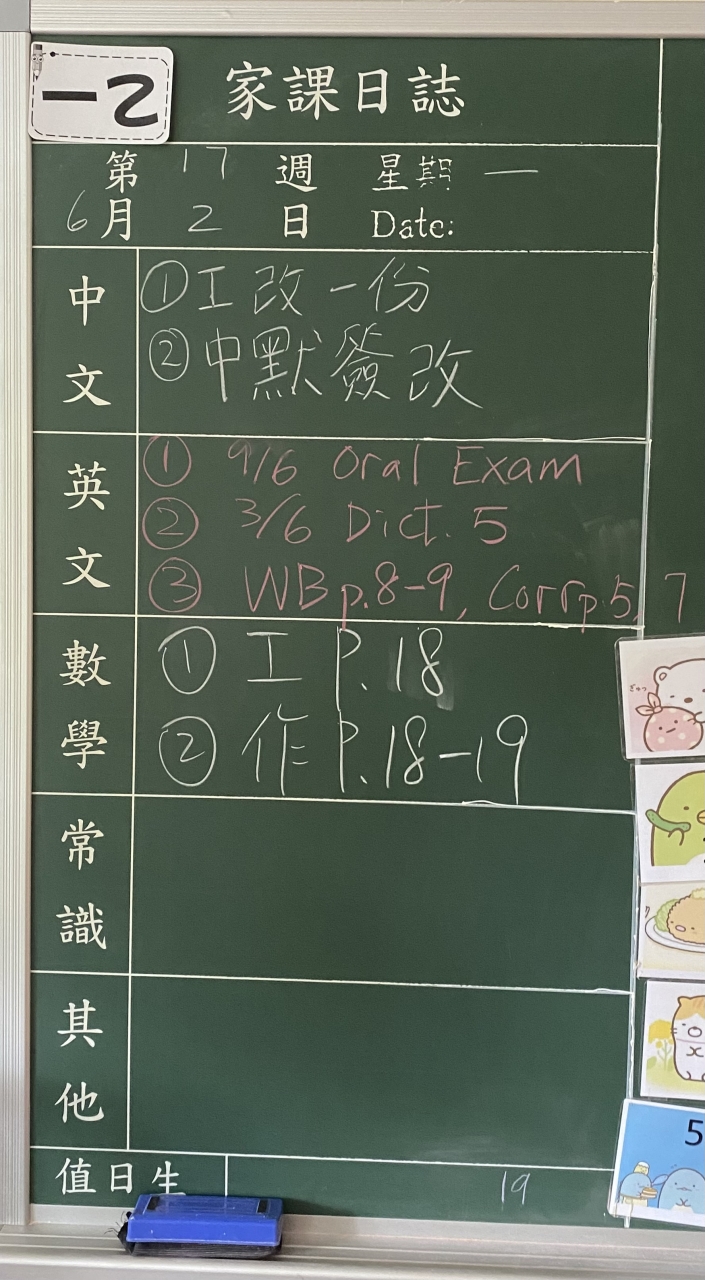 一2
家課日誌
第 17 週 星期 一
6月 2 日 Date:
中文
①工改一份
②中默簽改
英文
① 9/6 Oral Exam
② 3/6 Dict. 5
③ WB p.8-9, Corr p.5, 7
數學
① 工 P.18
② 作 P.18-19
常識
其他
值日生 19
5